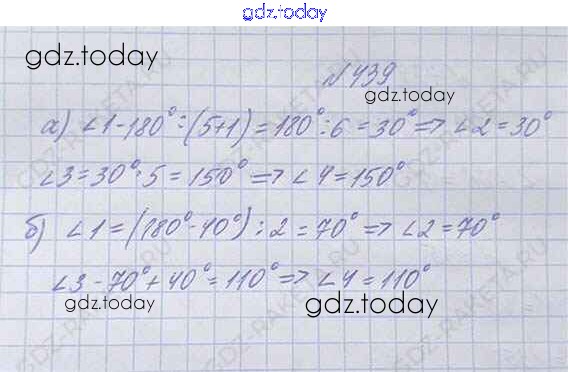 gdz.today
gdz.today
№439
gdz.today
а) ∠1-180°:(5+1)=180°:6=30°⇒∠2=30°
∠3=30°·5=150°⇒∠4=150°
б) ∠1=(180°-40°):2=70°⇒∠2=70°
∠3-70°+40°=110°⇒∠4=110°
gdz.today gdz.today